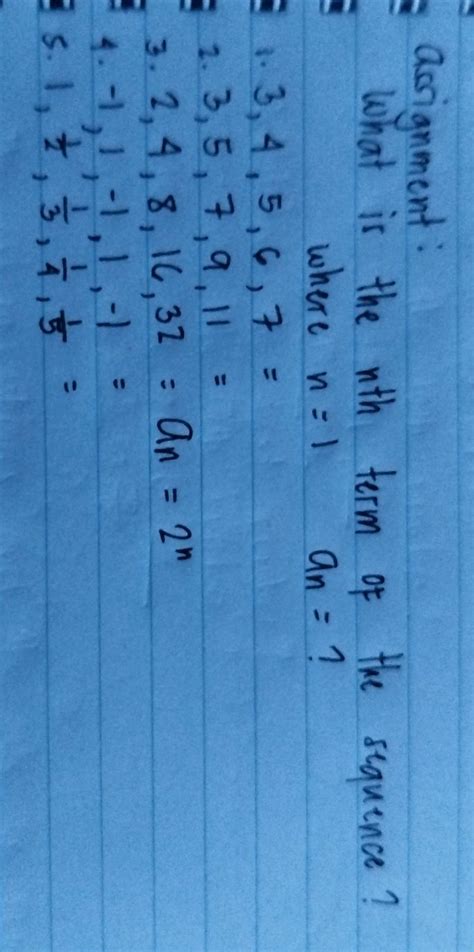 assignment:
What is the nth term of the sequence?
where n = 1 an = ?
1. 3, 4, 5, 6, 7 =
2. 3, 5, 7, 9, 11 =
3. 2, 4, 8, 16, 32 = an = 2ⁿ
4. -1, 1, -1, 1, -1 =
5. 1, 1/2, 1/3, 1/4, 1/5 =